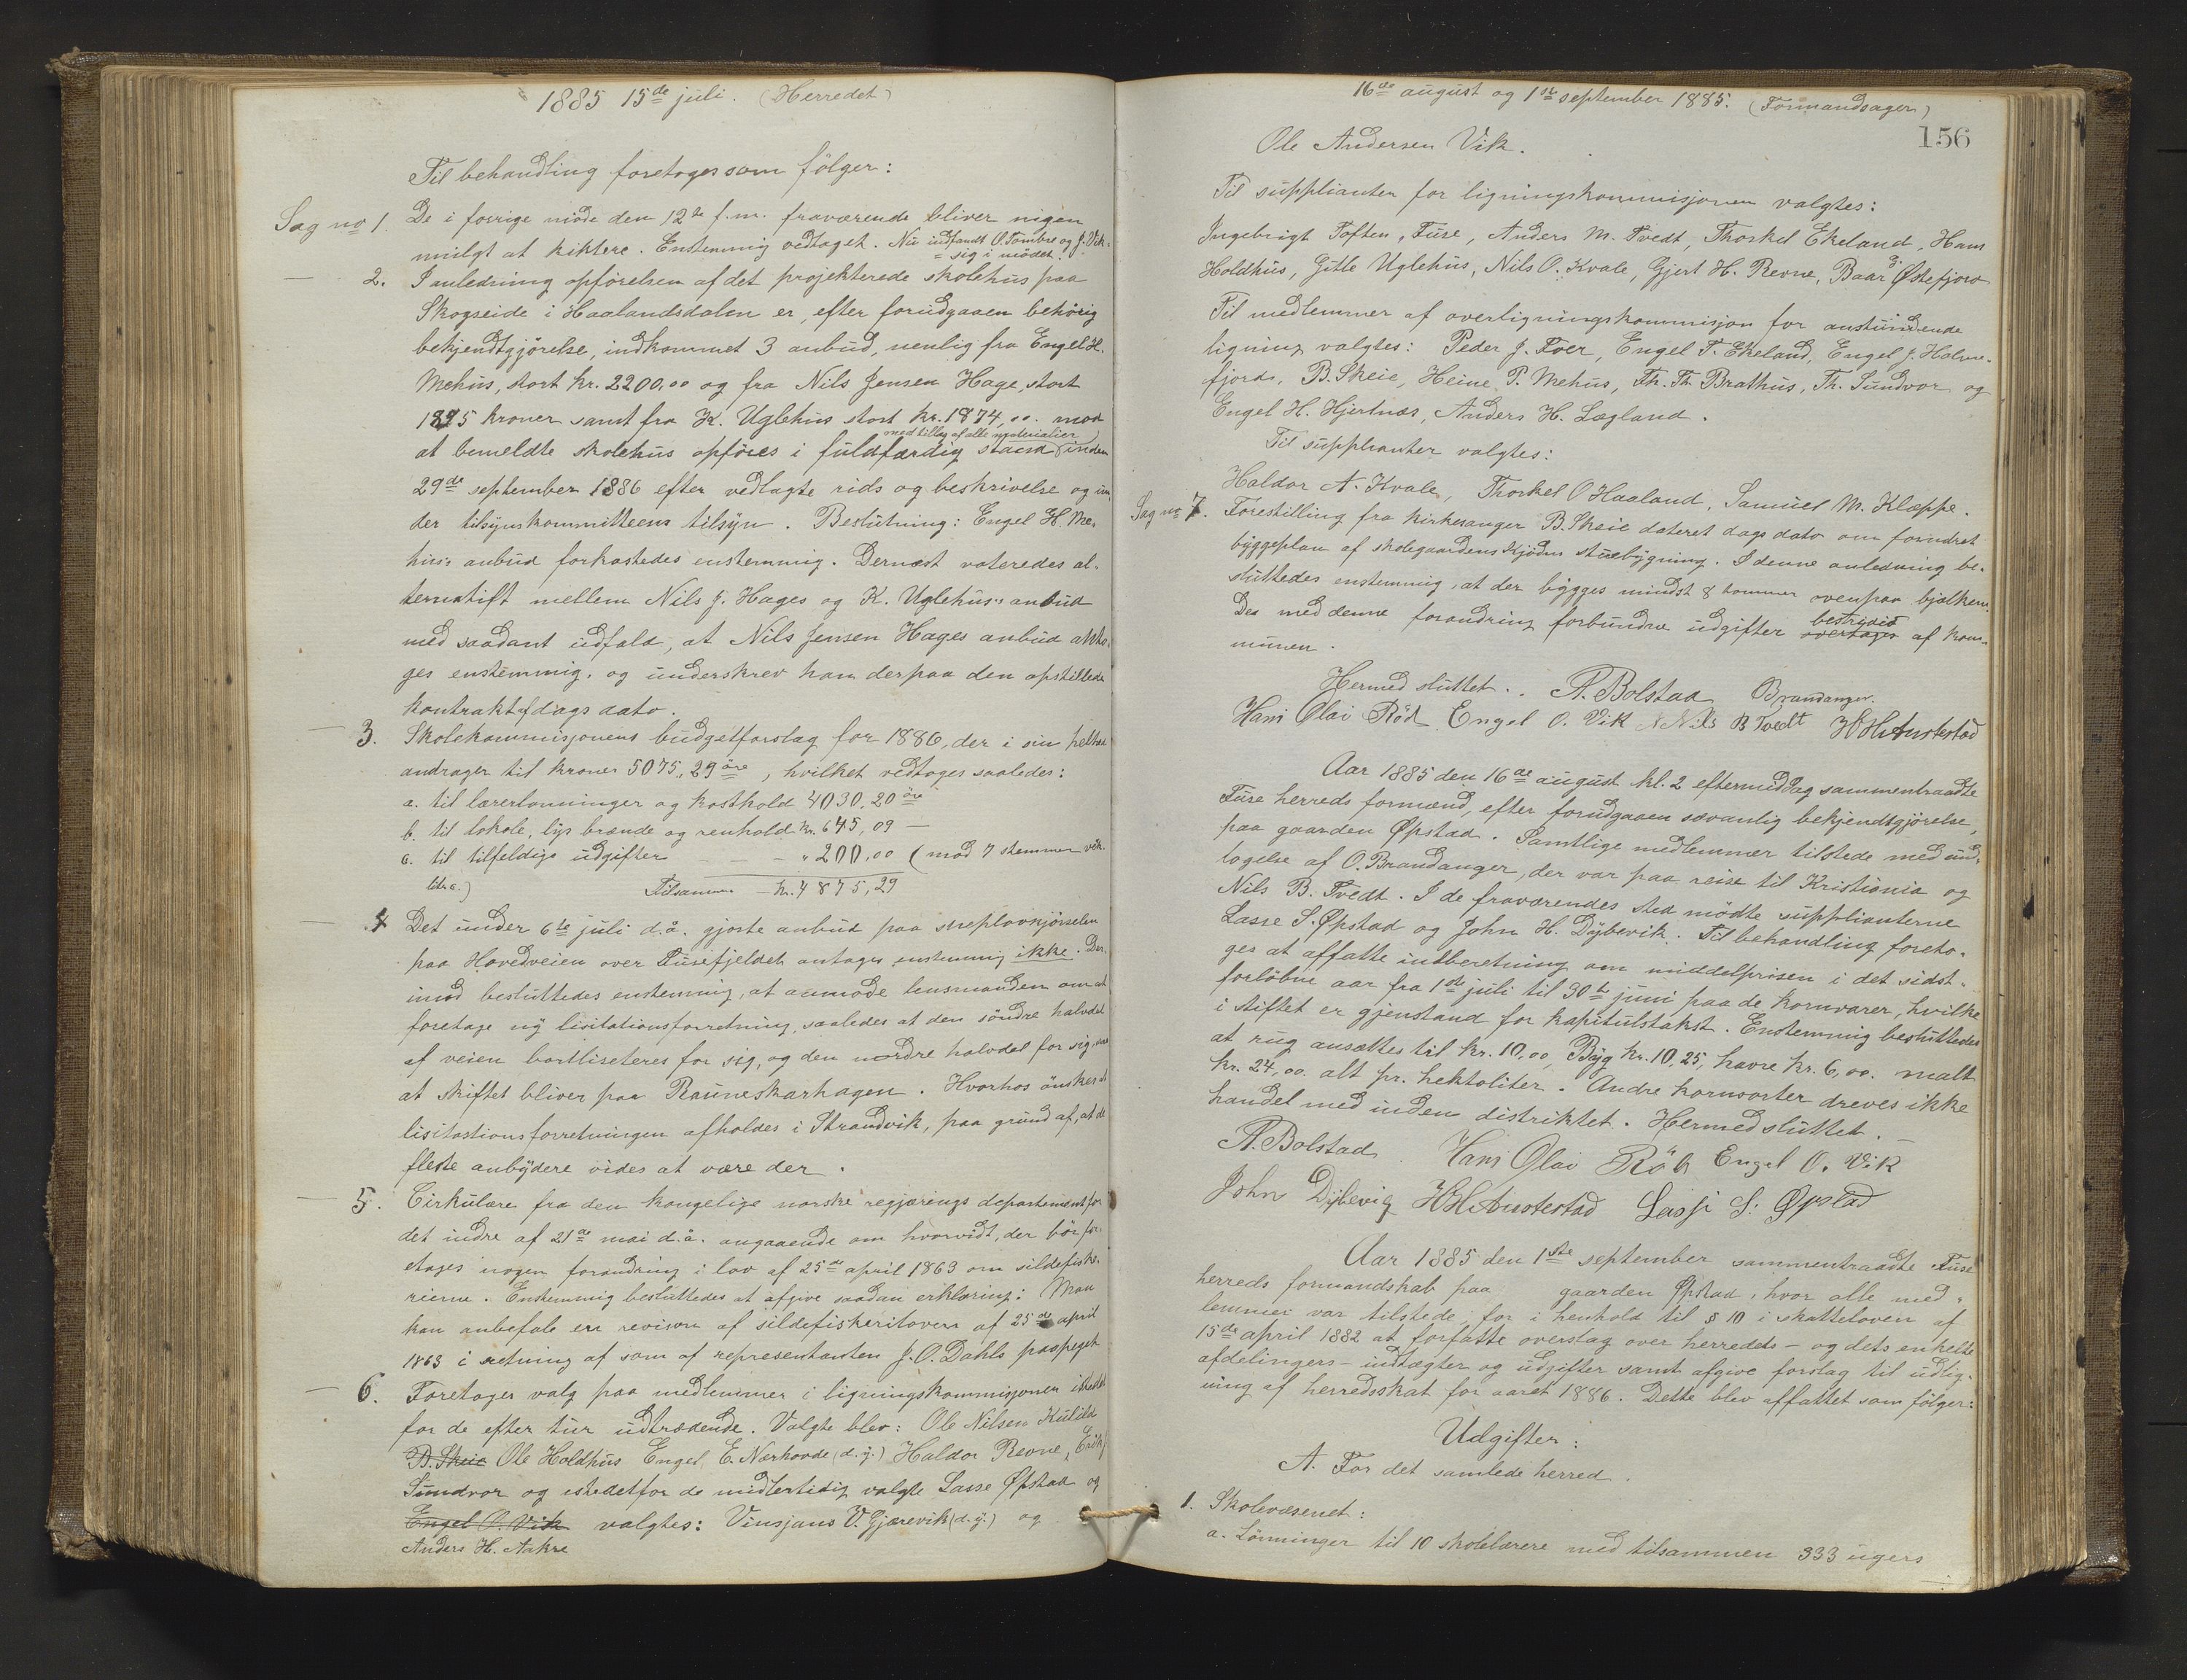 1885 15de juli. (Herredet)
Til behandling foretoges som følger:
Sag no 1. De i forrige møde den 12te f.m. fraværende bliver nigen
muligt at kiktere. Enstemmig vedtaget. Nu indfandt O. Tombre og J. Vik
= sig i mødet.
2. I anledning opførelsen af det projekterede skolehus paa
Skogseide i Haalandsdalen er, efter forudgaaen behørig
bekjendtgjørelse, indkommet 3 anbud, nemlig fra Engel H.
Mehus, stort kr. 2200,00 og fra Nils Jensen Hage, stort
1895 kroner samt fra K. Uglehus stort kr. 1874,00. mod
med tillæg af alle materialier
at bemeldte skolehus opføres i fuldfærdig stand inden
29de september 1886 efter vedlagte rids og beskrivelse og un-
der tilsynskommitteens tilsyn. Beslutning: Engel H. Me-
hus's anbud forkastedes enstemmig. Dernæst voteredes al-
ternatift mellem Nils J. Hages og K. Uglehus's anbud
med saadant udfald, at Nils Jensen Hages anbud antto-
ges enstemmig, og underskrev han derpaa den opstillede
kontrakt af dags dato.
3. Skolekommisjonens budgetforslag for 1886, der i sin helhed
andrager til kroner 5075,29 øre, hvilket vedtoges saaledes:
a. til lærerlønninger og kosthold 4030,20 øre
b. til lokale, lys brænde og renhold kr. 645,09 —
c. til tilfeldige udgifter — - " 200,00 (mod 7 stemmer ved-
litr. c.) Tilsammen — kr. 4875,29
4 Det under 6te juli d.å. gjorte anbud paa sneplovkjørselen
paa Hovedveien over Fusefjeldet antages enstemmig ikke. Der-
imod besluttedes enstemmig, at anmode lensmanden om at
foretage ny lisitationsforretning, saaledes at den søndre halvdel
af veien bortliseteres for sig, og den nordre halvdel for sig, saa
at skiftet bliver paa Rauneskarhagen. Hvorhos ønskes at
lisitastionsforretningen afholdes i Strandvik, paa grund af, at de
fleste anbydere vides at være der.
5. Cirkulære fra den kongelige norske regjærings departement for
det indre af 21de mai d.å. angaaende om hvorvidt, der bør for-
etages nogen forandring i lov af 25de april 1863 om sildefiske-
rierne. Enstemmig besluttedes at afgive saadan erklæring: Man
kan anbefale en revision af sildefiskeriloven af 25de april
1863 i retning af som af representanten J. O. Dahls paapeget.
6. Foretages valg paa medlemmer i ligningskommisjonen istedet
for de efter tur udtrædende. Valgte blev: Ole Nilsen Kulild
B. Skeie Ole Holdhus Engel E. Nærhovde (d.y.) Haldor Revne, Erik
Sundvor og istedetfor de midlertidig valgte Lasse Øpstad og
Engel O. Vik valgtes: Vinsjans V. Gjærevik (d.y.) og
Anders H. Aakre
16de august og 1ste september 1885. (Formandsager)
156
Ole Andersen Vik.
Til supplianter for ligningskommisjonen valgtes:
Ingebrigt Toften, Fuse, Anders M. Tvedt, Thorkel Ekeland, Hans
Holdhus, Gitle Uglehus, Nils O. Kvale, Gjert H. Revne, Baar Østefjord
Til medlemmer af overligningskommisjon for anstundende
ligning valgtes: Peder J. Foer, Engel T. Ekeland, Engel J. Holme-
fjord, B. Skeie, Heine P. Mehus, Th. Th. Brathus, Th. Sundvor og
Engel H. Hjertnæs, Anders H. Lægland.
Til supplianter valgtes:
Haldor A. Kvale, Thorkel O Haaland, Samuel M. Kleppe.
Sag no 7. Forestilling fra kirkesanger B. Skeie dateret dags dato om forandret
byggeplan af skolegaardens Kjødns stuebygning. I denne anledning be-
sluttedes enstemmig, at der bygges mindst 8 tommer ovenpaa bjelkerne.
bestrides
De med denne forandring forbundne udgifter overtages af kom-
munen.
Hermed sluttet. . A. Bolstad Brandanger.
Hans Olai Rød Engel O. Vik Nils B Tvedt H H Austestad
Aar 1885 den 16de august kl. 2 eftermiddag sammentraadte
Fuse herreds formænd, efter forudgaaen sævanlig bekjendtgjørelse,
paa gaarden Øpstad. Samtlige medlemmer tilstede med und-
tagelse af O. Brandanger, der var paa reise til Kristiania og
Nils B. Tvedt. I de fraværendes sted mødte supplianterne
Lasse S. Øpstad og John H. Dybevik. Til behandling foreto-
ges at affatte indberetning om middelprisen i det sidst-
forløbne aar fra 1ste juli til 30te juni paa de kornvarer, hvilke
i stiftet er gjenstand for kapitulstakst. Enstemmig besluttedes
at rug ansættes til kr. 10,00, Byg kr. 10,25, havre kr. 6,00. malt
kr. 24,00. alt pr. hektoliter. Andre kornsorter dreves ikke
handel med inden distriktet. Hermed sluttet. —
A. Bolstad Hans Olai Röd Engel O. Vik
John Dybevig H H Austestad Lasse S. Øpstad
Aar 1885 den 1ste september sammentraadte Fuse
herreds formandskab paa gaarden Øpstad, hvor alle med-
lemmer var tilstede, for i henhold til § 10 i skatteloven af
15de april 1882 at forfatte overslag over herredets - og dets enkelte
afdelingers - indtægter og udgifter samt afgive forslag til udlig-
ning af herredsskat for aaret 1886. Dette blev affattet som følger:
Udgifter:
A. For det samlede herred.
1. Skolevæsenet:
a. Lønninger til 10 skolelærere med tilsammen 333 ugers